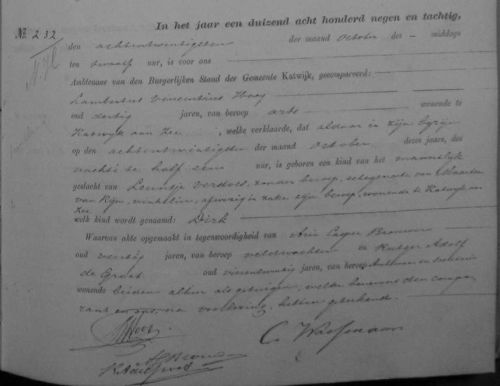 In het jaar een duizend acht honderd negen en tachtig,
No. 232
den achtentwintigsten der maand October des – middags
ten twaalf ure, is voor ons
Ambtenaar van den Burgerlijken Stand der Gemeente Katwijk, gecompareerd:
Lambertus Vincentius Hooij
oud dertig jaren, van beroep arts wonende te
Katwijk aan Zee, welke verklaarde, dat aldaar in zijn bijzijn
op den achtentwintigsten der maand October dezes jaars, des
nachts te half een ure, is geboren een kind van het mannelijk
geslacht van Leuntje Verdoes, zonder beroep, echtgenoote van Maarten
van Rijn, winkelier, afwezig in zake zijn beroep, wonende te Katwijk aan
Zee
welk kind wordt genaamd: Dirk
Waarvan akte opgemaakt in tegenwoordigheid van Arie Casper Brouwer
oud veertig jaren, van beroep veldwachter en Rutger Adolf
de Groot oud vierentwintig jaren, van beroep
wonende beiden alhier als getuigen, welke benevens den compa
rant en ons, na voorlezing, hebben geteekend.